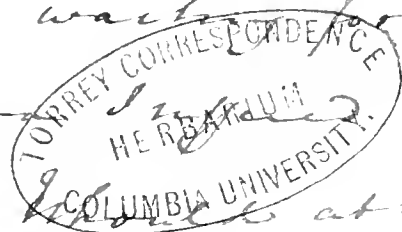 waiting for
TORREY CORRESPONDENCE
HERBARIUM
COLUMBIA UNIVERSITY.
at